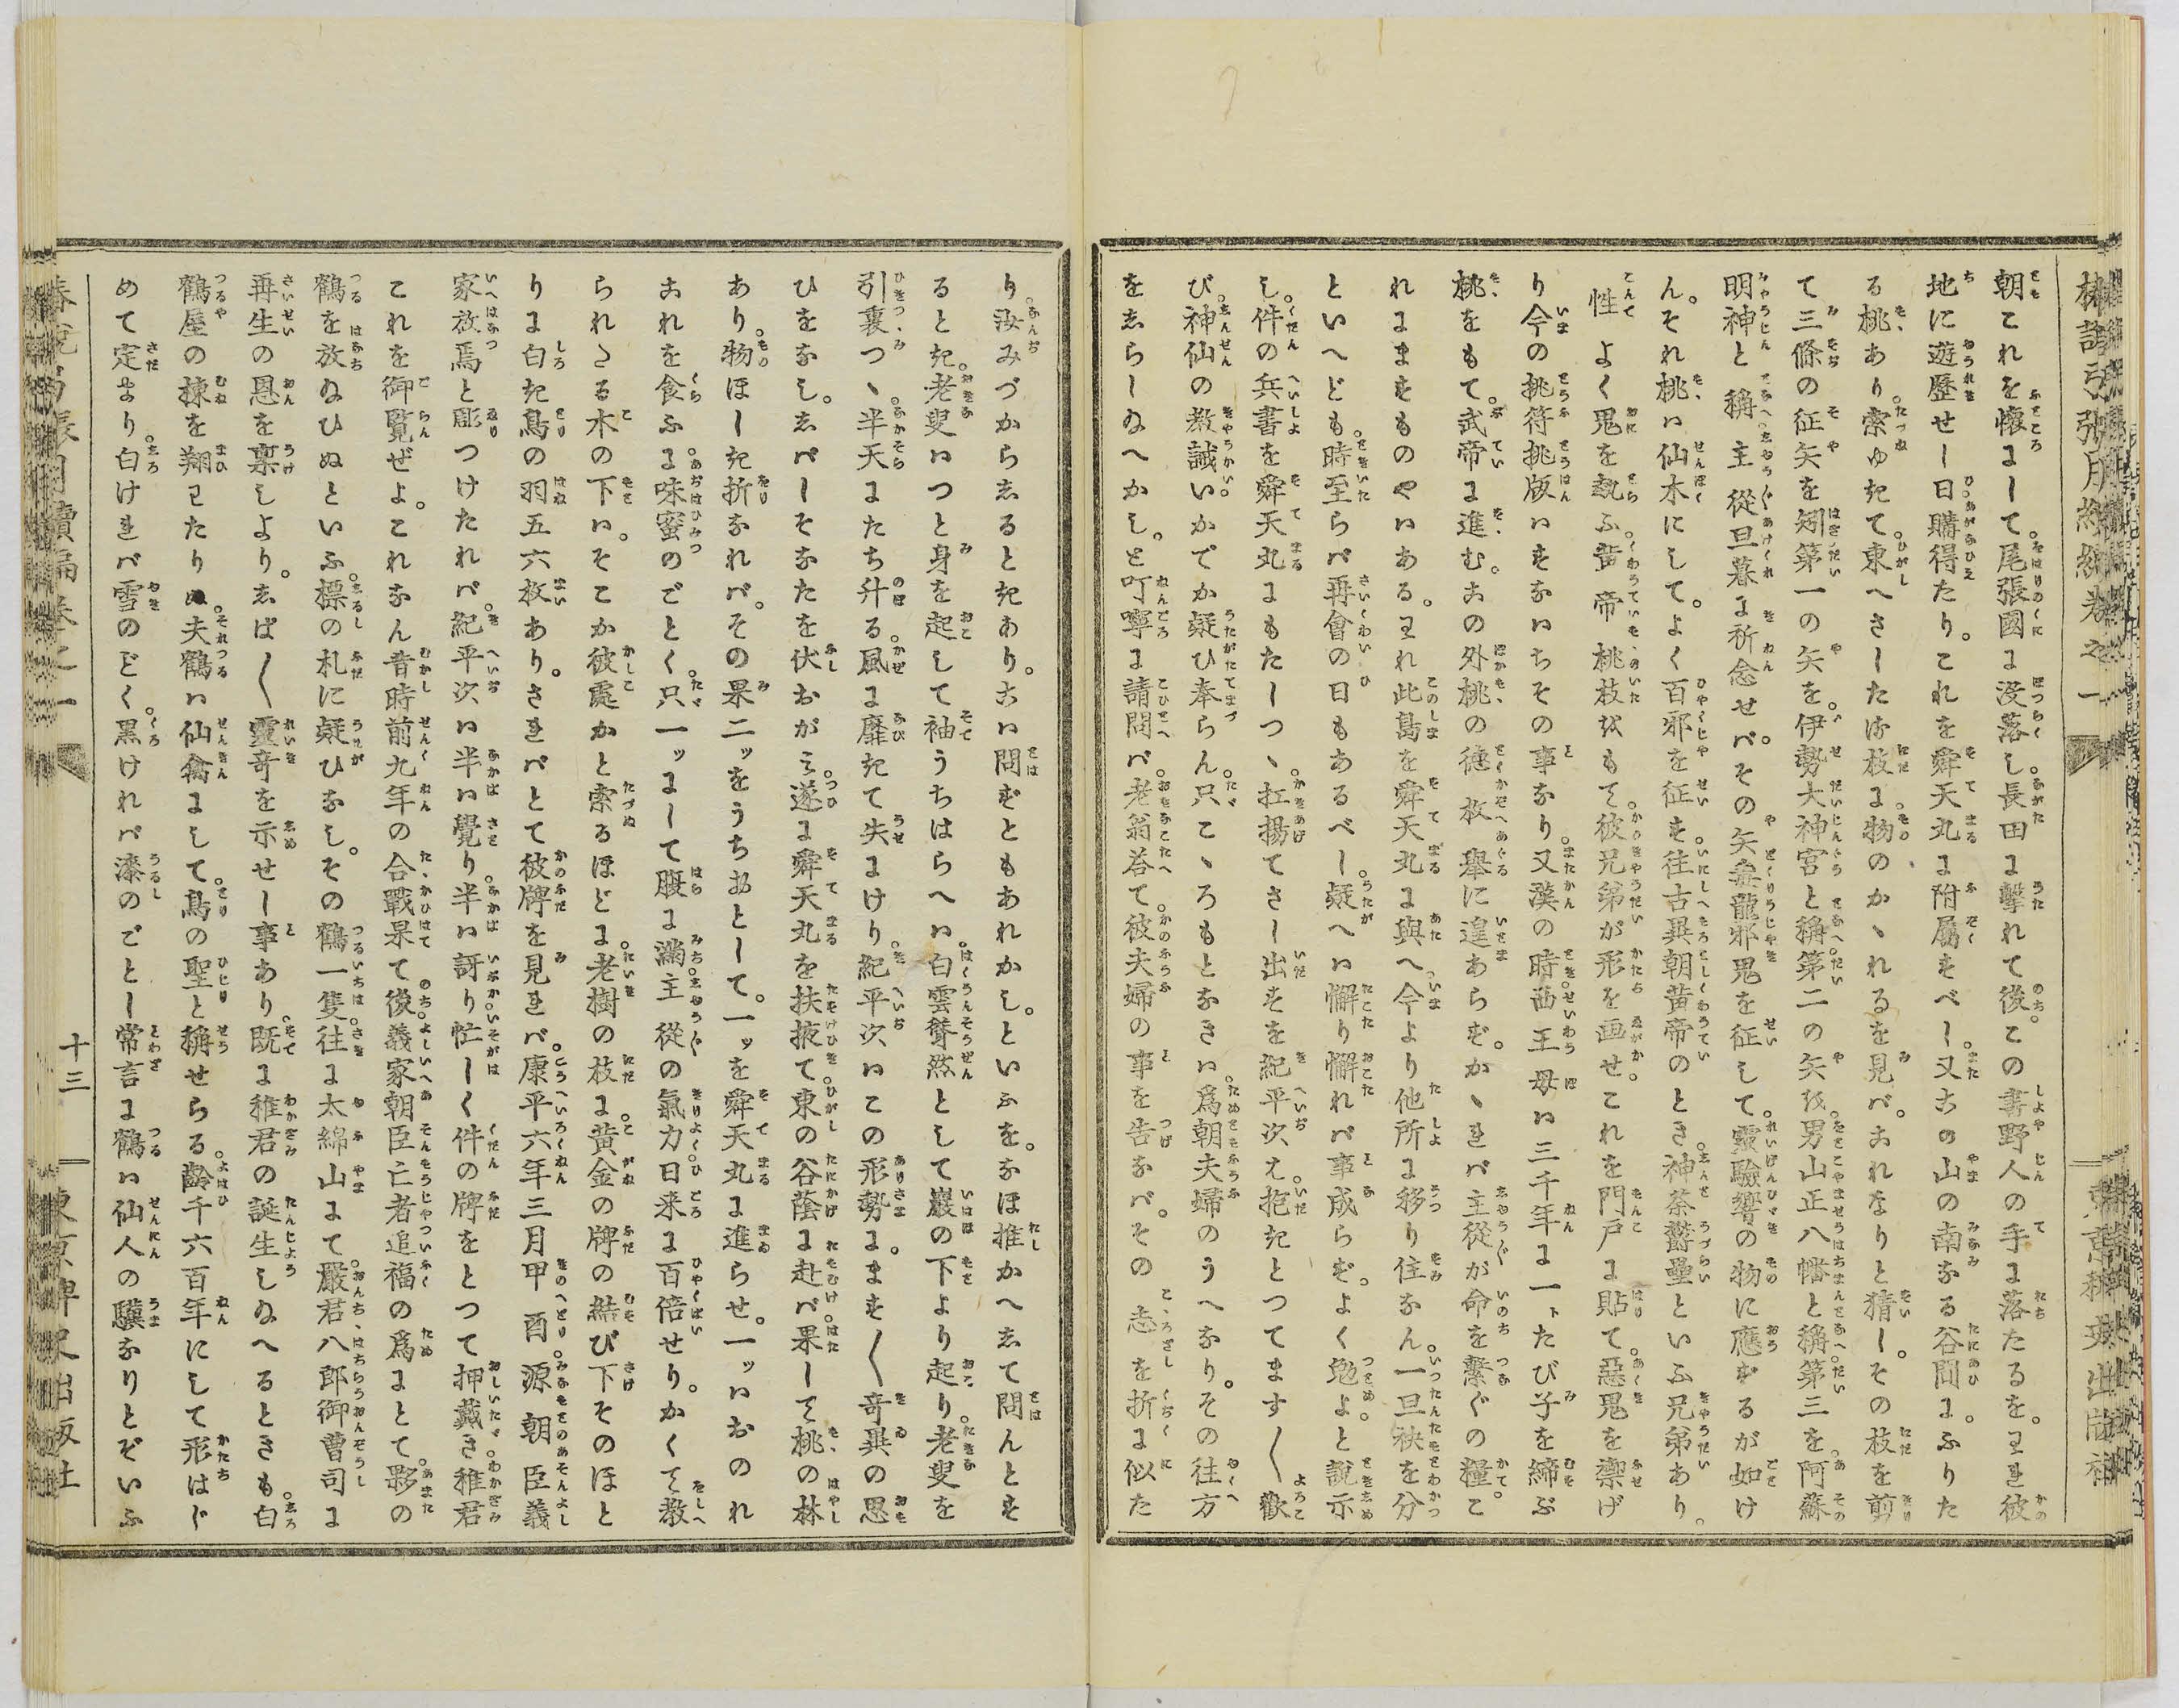 朝これを懷にして。尾張國に沒落し。長田に擊れて後。この書野人の手に落たるを。われ彼
地に遊歷せし日。購得たり。これを舜天丸に附屬すべし。又この山の南なる谷間に。ふりた
る桃あり。索ゆきて。東へさしたる枝に。物のかゝれるを見ば。これなりと猜し。その枝を剪
て三條の征矢を矧。第一の矢を。伊勢大神宮と稱。第二の矢を。男山正八幡と稱。第三を阿蘇
明神と稱。主從旦暮に祈念せば。その矢毒龍邪鬼を征して。靈驗響の物に應ずるが如け
ん。それ桃は仙木にして。よく百邪を征す。往古異朝黃帝のとき。神荼欝壘といふ兄弟あり。
性よく鬼を執ふ。黃帝桃枝をもて。彼兄弟が形を画せ。これを門戶に貼て。惡鬼を禦げ
り。今の桃符桃版はすなはちその事なり。又漢の時西王母は三千年に一トたび子を締ぶ
桃をもて。武帝に進む。この外桃の德枚擧に遑あらず。かゝれば主從が命を繫ぐの糧こ
れにますものやはある。われ此島を舜天丸に與へ。今より他所に移り住なん。一旦袂を分
といへども。時至らば再會の日もあるべし。疑へは懈り懈れば事成らず。よく勉よ。と說示
し。件の兵書を舜天丸にもたしつゝ。扛揚てさし出すを紀平次え抱きとつてます〳〵歡
び。神仙の敎誡いかでか疑ひ奉らん。只こゝろもとなきは。爲朝夫婦のうへなり。その往方
をしらしめへかし。と叮嚀に請問ば。老翁荅て。彼夫婦の事を告なば。その志を折に似た
り。汝みづからしるときあり。こは問ずともあれかし。といふを。なほ推かへして問んとす
るとき。老叟はつと身を起して袖うちはらへは。白雲聳然として巖の下より起り。老叟を
引裹つゝ。半天にたち升る。風に靡きて失にけり。紀平次はこの形勢に。ます〳〵奇異の思
ひをなし。しばしそなたを伏おがみ。遂に舜天丸を扶掖て。東の谷蔭に赴ば。果して桃の林
あり。物ほしき折なれば。その果二ッをうちおとして。一ッを舜天丸に進らせ。一ッはおのれ
これを食ふに。味蜜のごとく。只一ッにして腹に滿。主從の氣力日来に百倍せり。かくて敎
られたる木の下は。そこか彼處かと索るほどに。老樹の枝に。黃金の牌の結び下そのほと
りに白き鳥の羽五六枚あり。さればとて彼牌を見れば。康平六年三月甲酉。源朝臣義
家放焉と彫つけたれば。紀平次は半は覺り。半は訝り忙しく件の牌をとつて押戴き。稚君
これを御覽ぜよ。これなん昔時前九年の合戰果て後。義家朝臣亡者追福の爲にとて。夥の
鶴を放ぬひぬといふ。標の札に疑ひなし。その鶴一隻。往に太綿山にて。嚴君八郎御曹司に
再生の恩を稟しより。しば〳〵靈奇を示せし事あり。既に稚君の誕生しぬへるときも。白
鶴屋の棟を翔ひわたりぬ。夫鶴は仙禽にして。鳥の聖と稱せらる。齡千六百年にして形はじ
めて定まり。白ければ雪のごく。黑ければ漆のごとし。常言に鶴は仙人の驥なりとぞいふ
十三